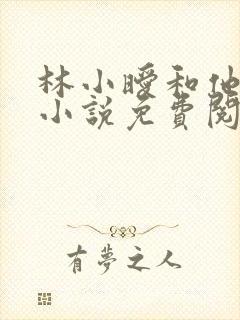 林小曖和他
小說免費閱
有夢之人